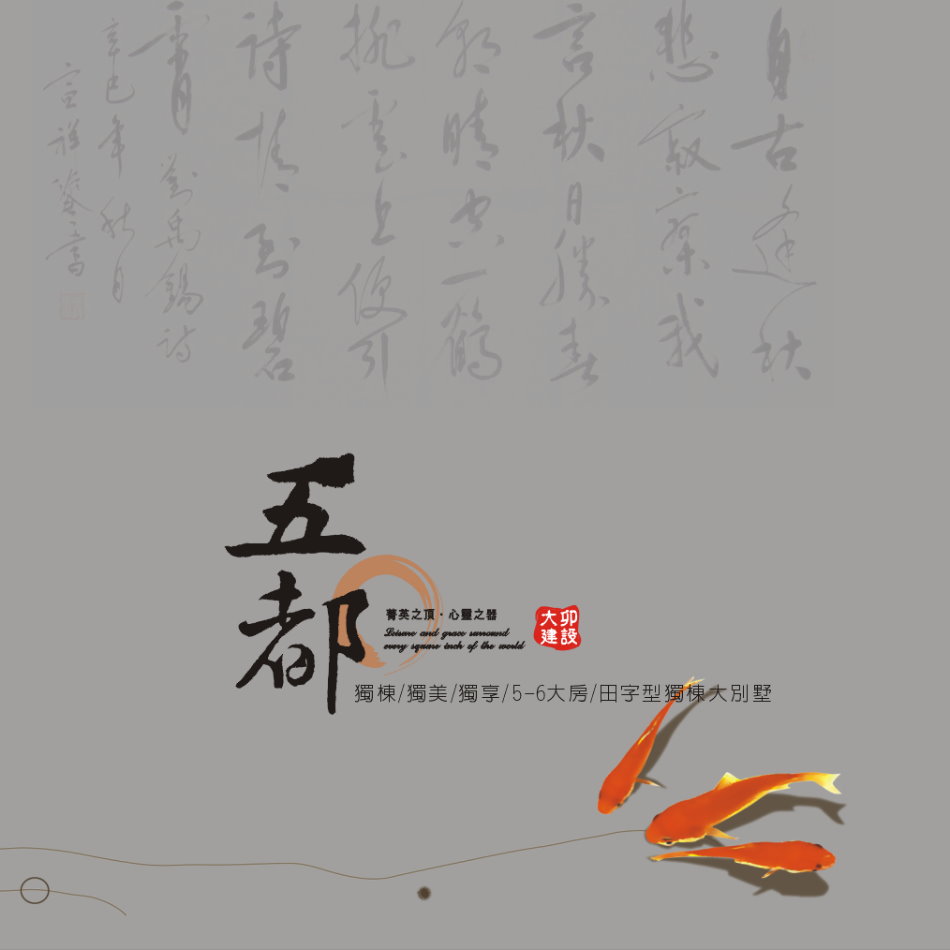 自古逢秋
悲寂寥我
言秋日勝春
朝晴空一鶴
排雲上便引
詩情到碧
霄 劉禹錫詩
辛巳年秋月
宣祥書
五都
菁英之頂·心靈之器
Leisure and grace surround
every square inch of the world
大卯
建設
獨棟/獨美/獨享/5-6大房/田字型獨棟大別墅